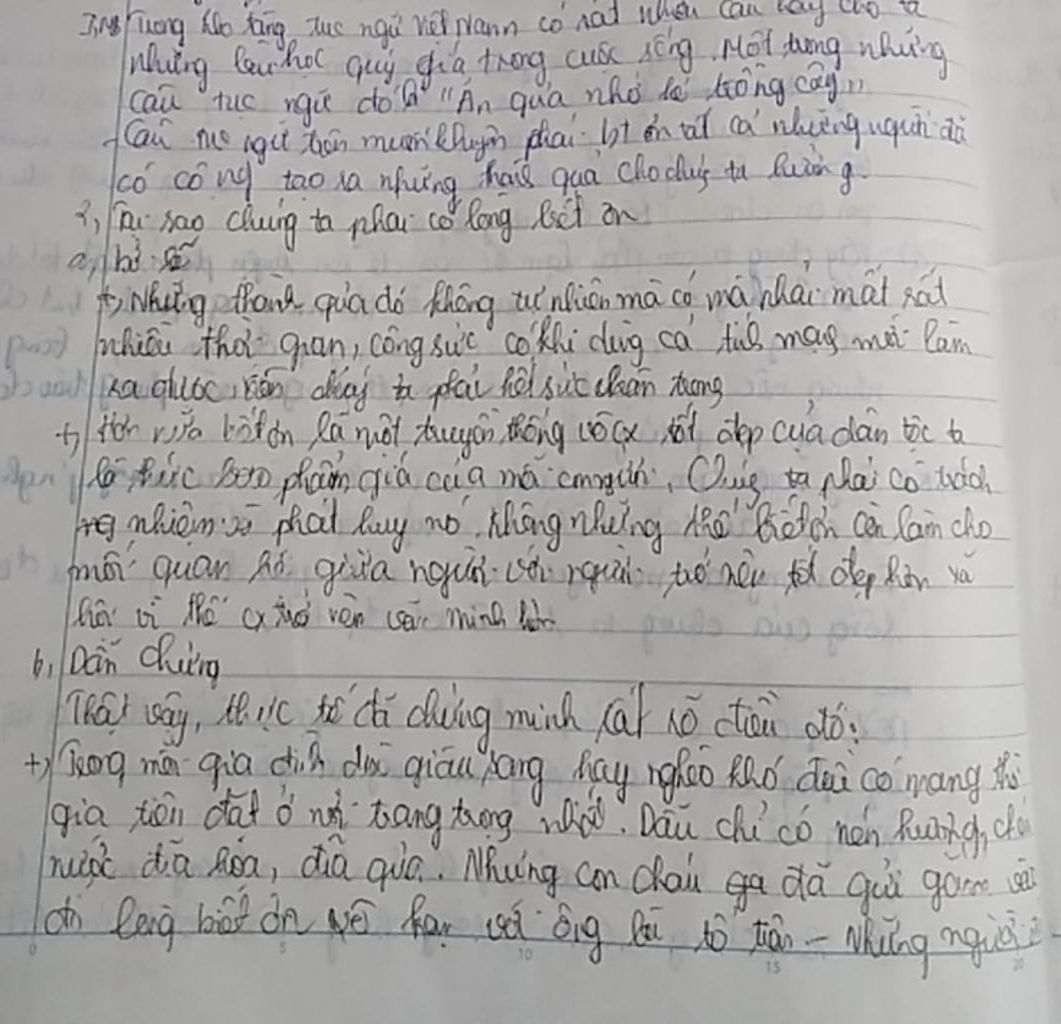 Trong kho tàng tục ngữ Việt Nam có rất nhiều câu hay cho ta
những bài học quý giá trong cuộc sống. Một trong những
câu tục ngữ đó là "Ăn quả nhớ kẻ trồng cây"
Câu tục ngữ trên muốn khuyên phải bt ơn tất cả những người đã
có công tạo ra những thành quả cho chúng ta hưởng.
2, Tại sao chúng ta phải có lòng biết ơn
a, Lí lẽ
+, Những thành quả đó không tự nhiên mà có mà phải mất rất
nhiều thời gian, công sức có khi dùng cả tính mạng mới làm
ra được, nên chúng ta phải hết sức chân trọng
+, Hơn nữa biết ơn là một truyền thống vô cx tốt đẹp của dân tộc ta
là thước đo phẩm giá của mỗi con người. Chúng ta phải có trách
nhiệm phát huy nó. Không những thế biết ơn còn làm cho
mối quan hệ giữa người với người trở nên tốt đẹp hơn xã
hội vì thế cx trở nên văn minh hơn
b, Dẫn chứng
Thật vậy, thực tế đã chứng minh rất rõ điều đó:
+, Trong mỗi gia đình dù giàu sang hay nghèo khó đều có mang thờ
gia tiên đặt ở nơi trang trọng nhất. Dẫu chỉ có nén hương, chén
nước đĩa hoa, đĩa quả. Nhưng con cháu đã gửi gắm vào
đó lòng biết ơn vô hạn với ông bà tổ tiên - Những người